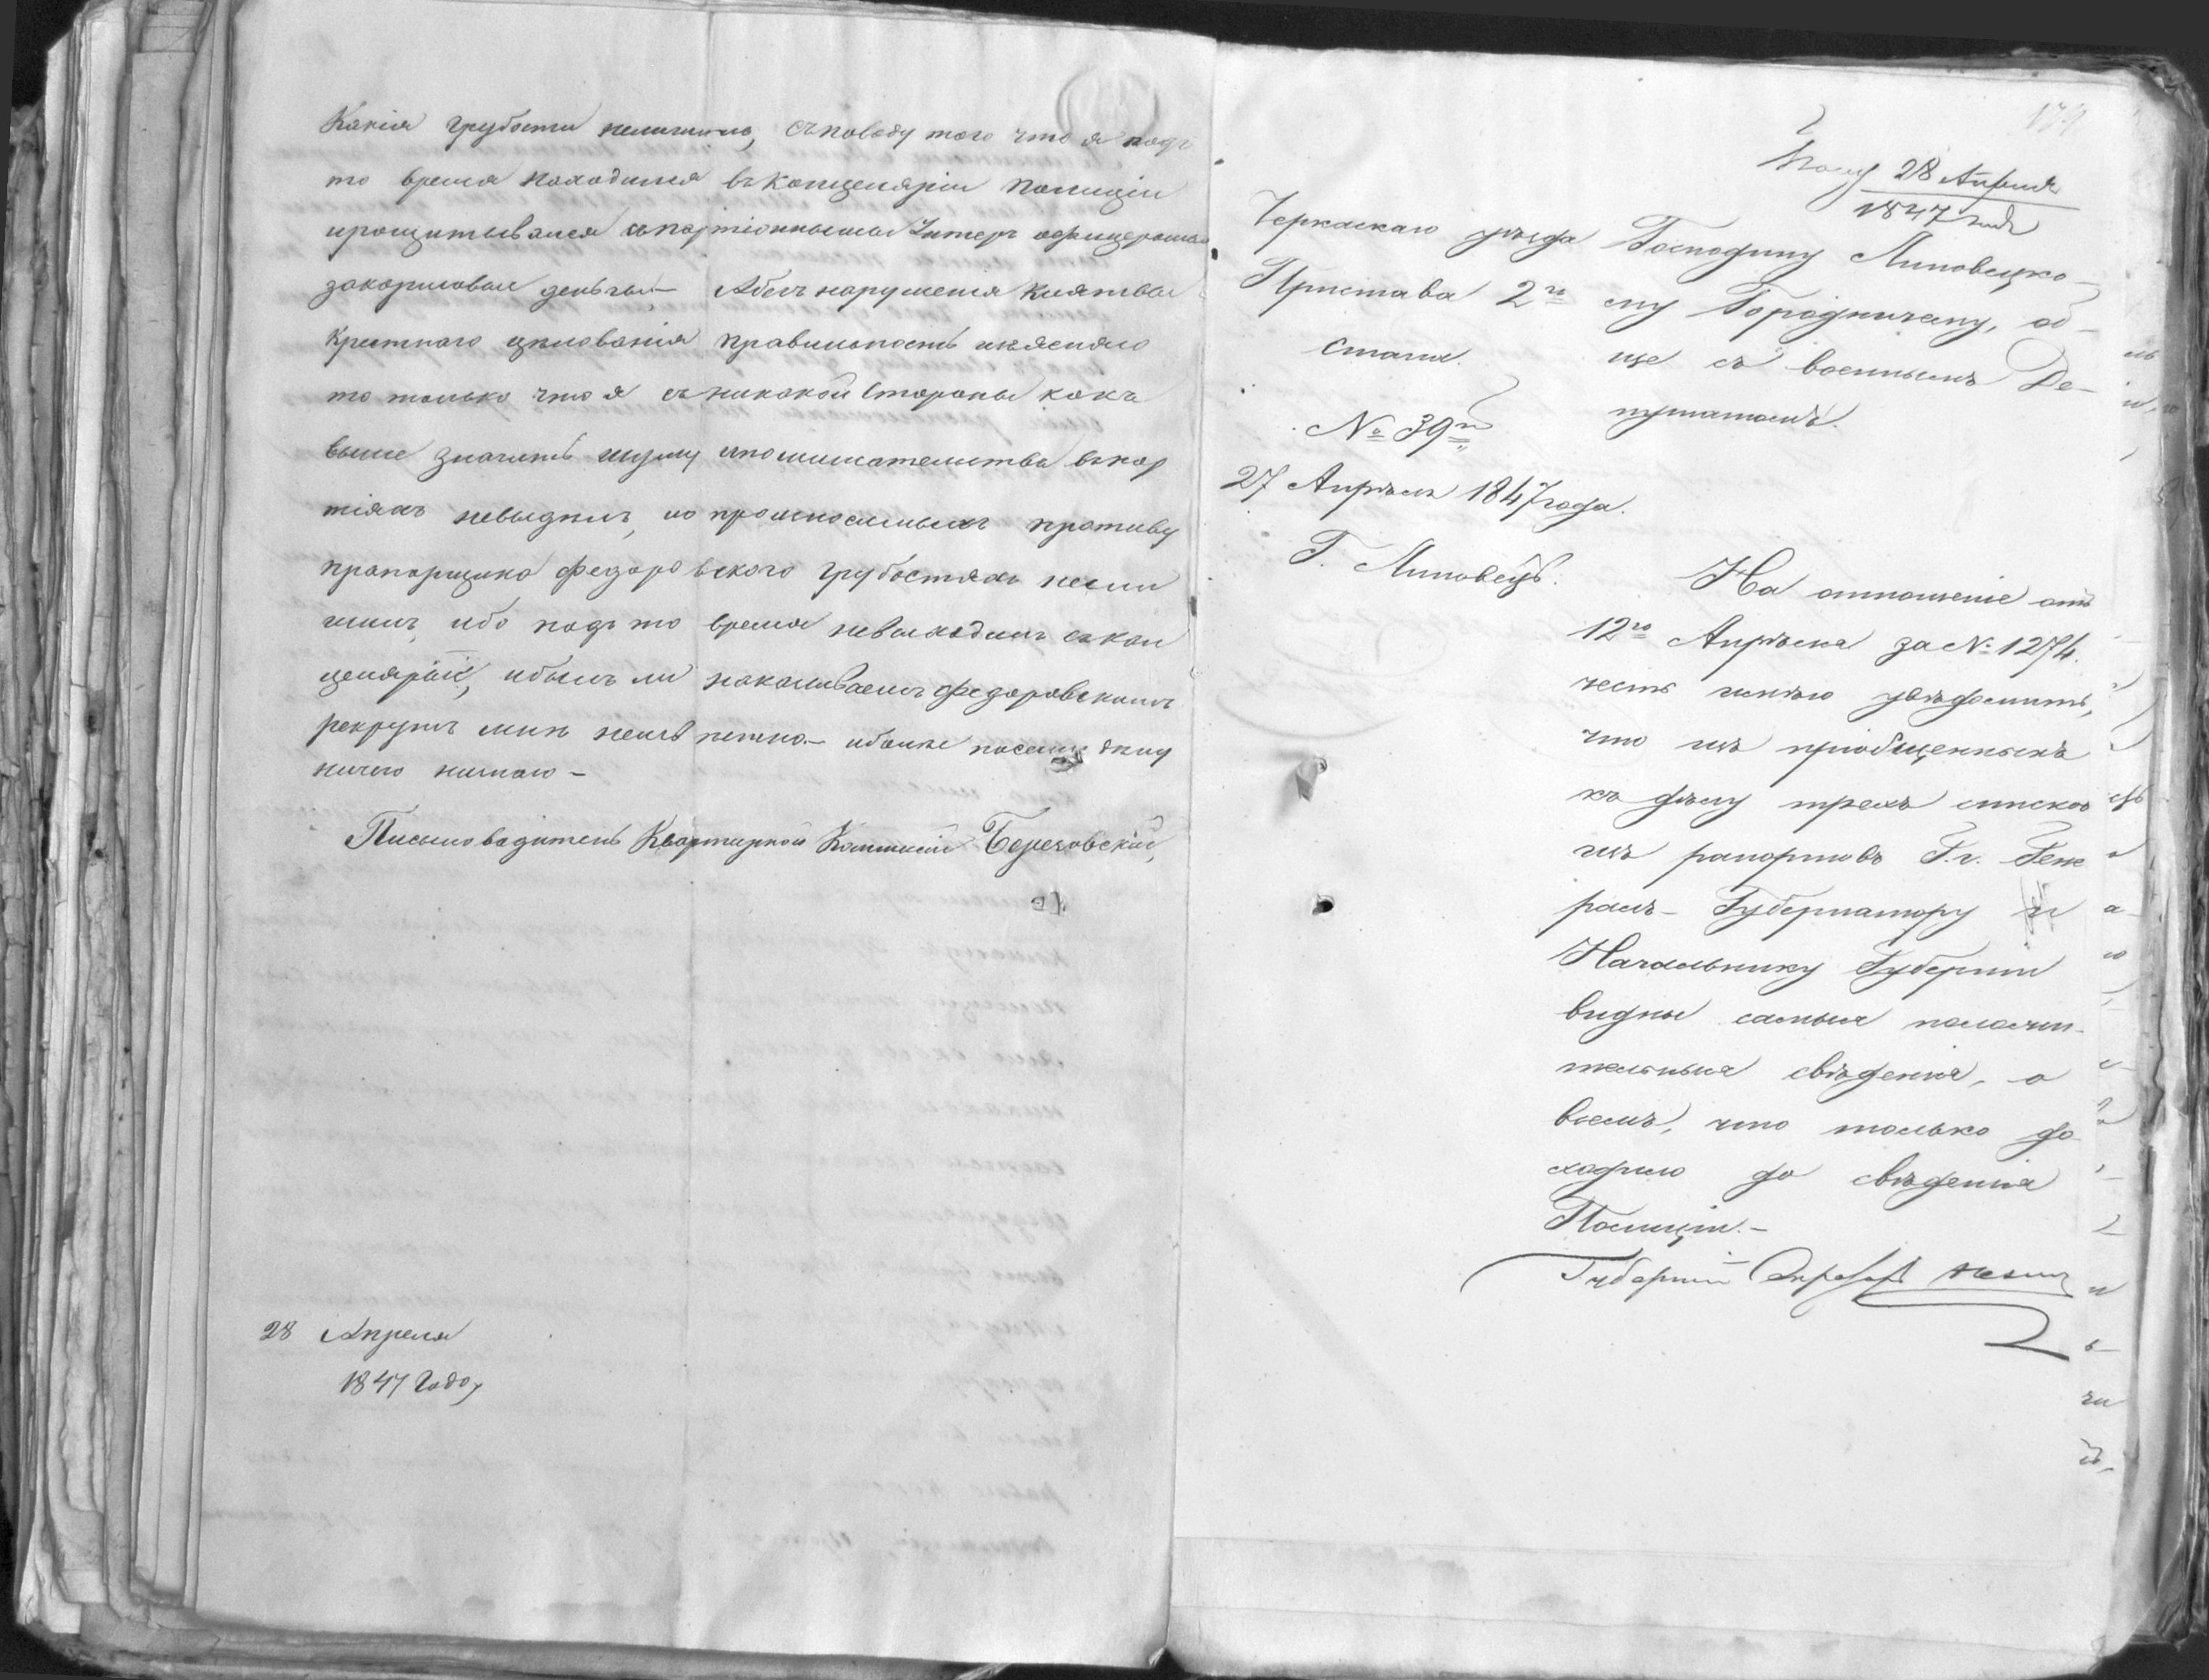 Какія грубости нелишнь, съповоду того что я подъ
то время находился вьконцеляріи полиціи
прощитывался съпартіонными Унтеръ офицерами
закормовыи деньгы – Абезъ нарушенія Клятвы
крестнаго целованія правильность изясняю
то только что я съникакой стороны какъ
выше значитъ шуму ипомишательства въпар
тіяхъ невыдилъ, ио произносимыхъ противу
прапорщика федоровского грубостяхъ несли
шилъ, ибо подъ то время невыходилъ съкан
целяріи, ибылъ ли наказиваемъ федоровскимъ
рекрутъ мнѣ неизвѣстно.– иболѣе посему дѣлу
ничего незнаю –
Письмоводитель Квартирной Комисіи Березовскій,
28 Апреля
1847 Году
174
Полу 28 Апреля
1847 года
Черкаскаго уѣзда
Пристава 2го
Стана.
№ 39й
27 Апрѣля 1847 года.
Г. Липовецъ.
Господину Липовецко–
му Городничему, об–
ще съ военнымъ Де–
путатомъ.
На отношеніе отъ
12го Апрѣля за № 1274.
честь имѣю увѣдомить,
что изъ пріобщенныхъ
къ дѣлу трехъ списковъ
изъ рапортовъ Г.г. Гене
ралъ– Губернатору и
Начальнику Губерніи
видны самыя положи–
тельныя свѣденія, о
всемъ, что только до
ходило до свѣденія
Полиціи.–